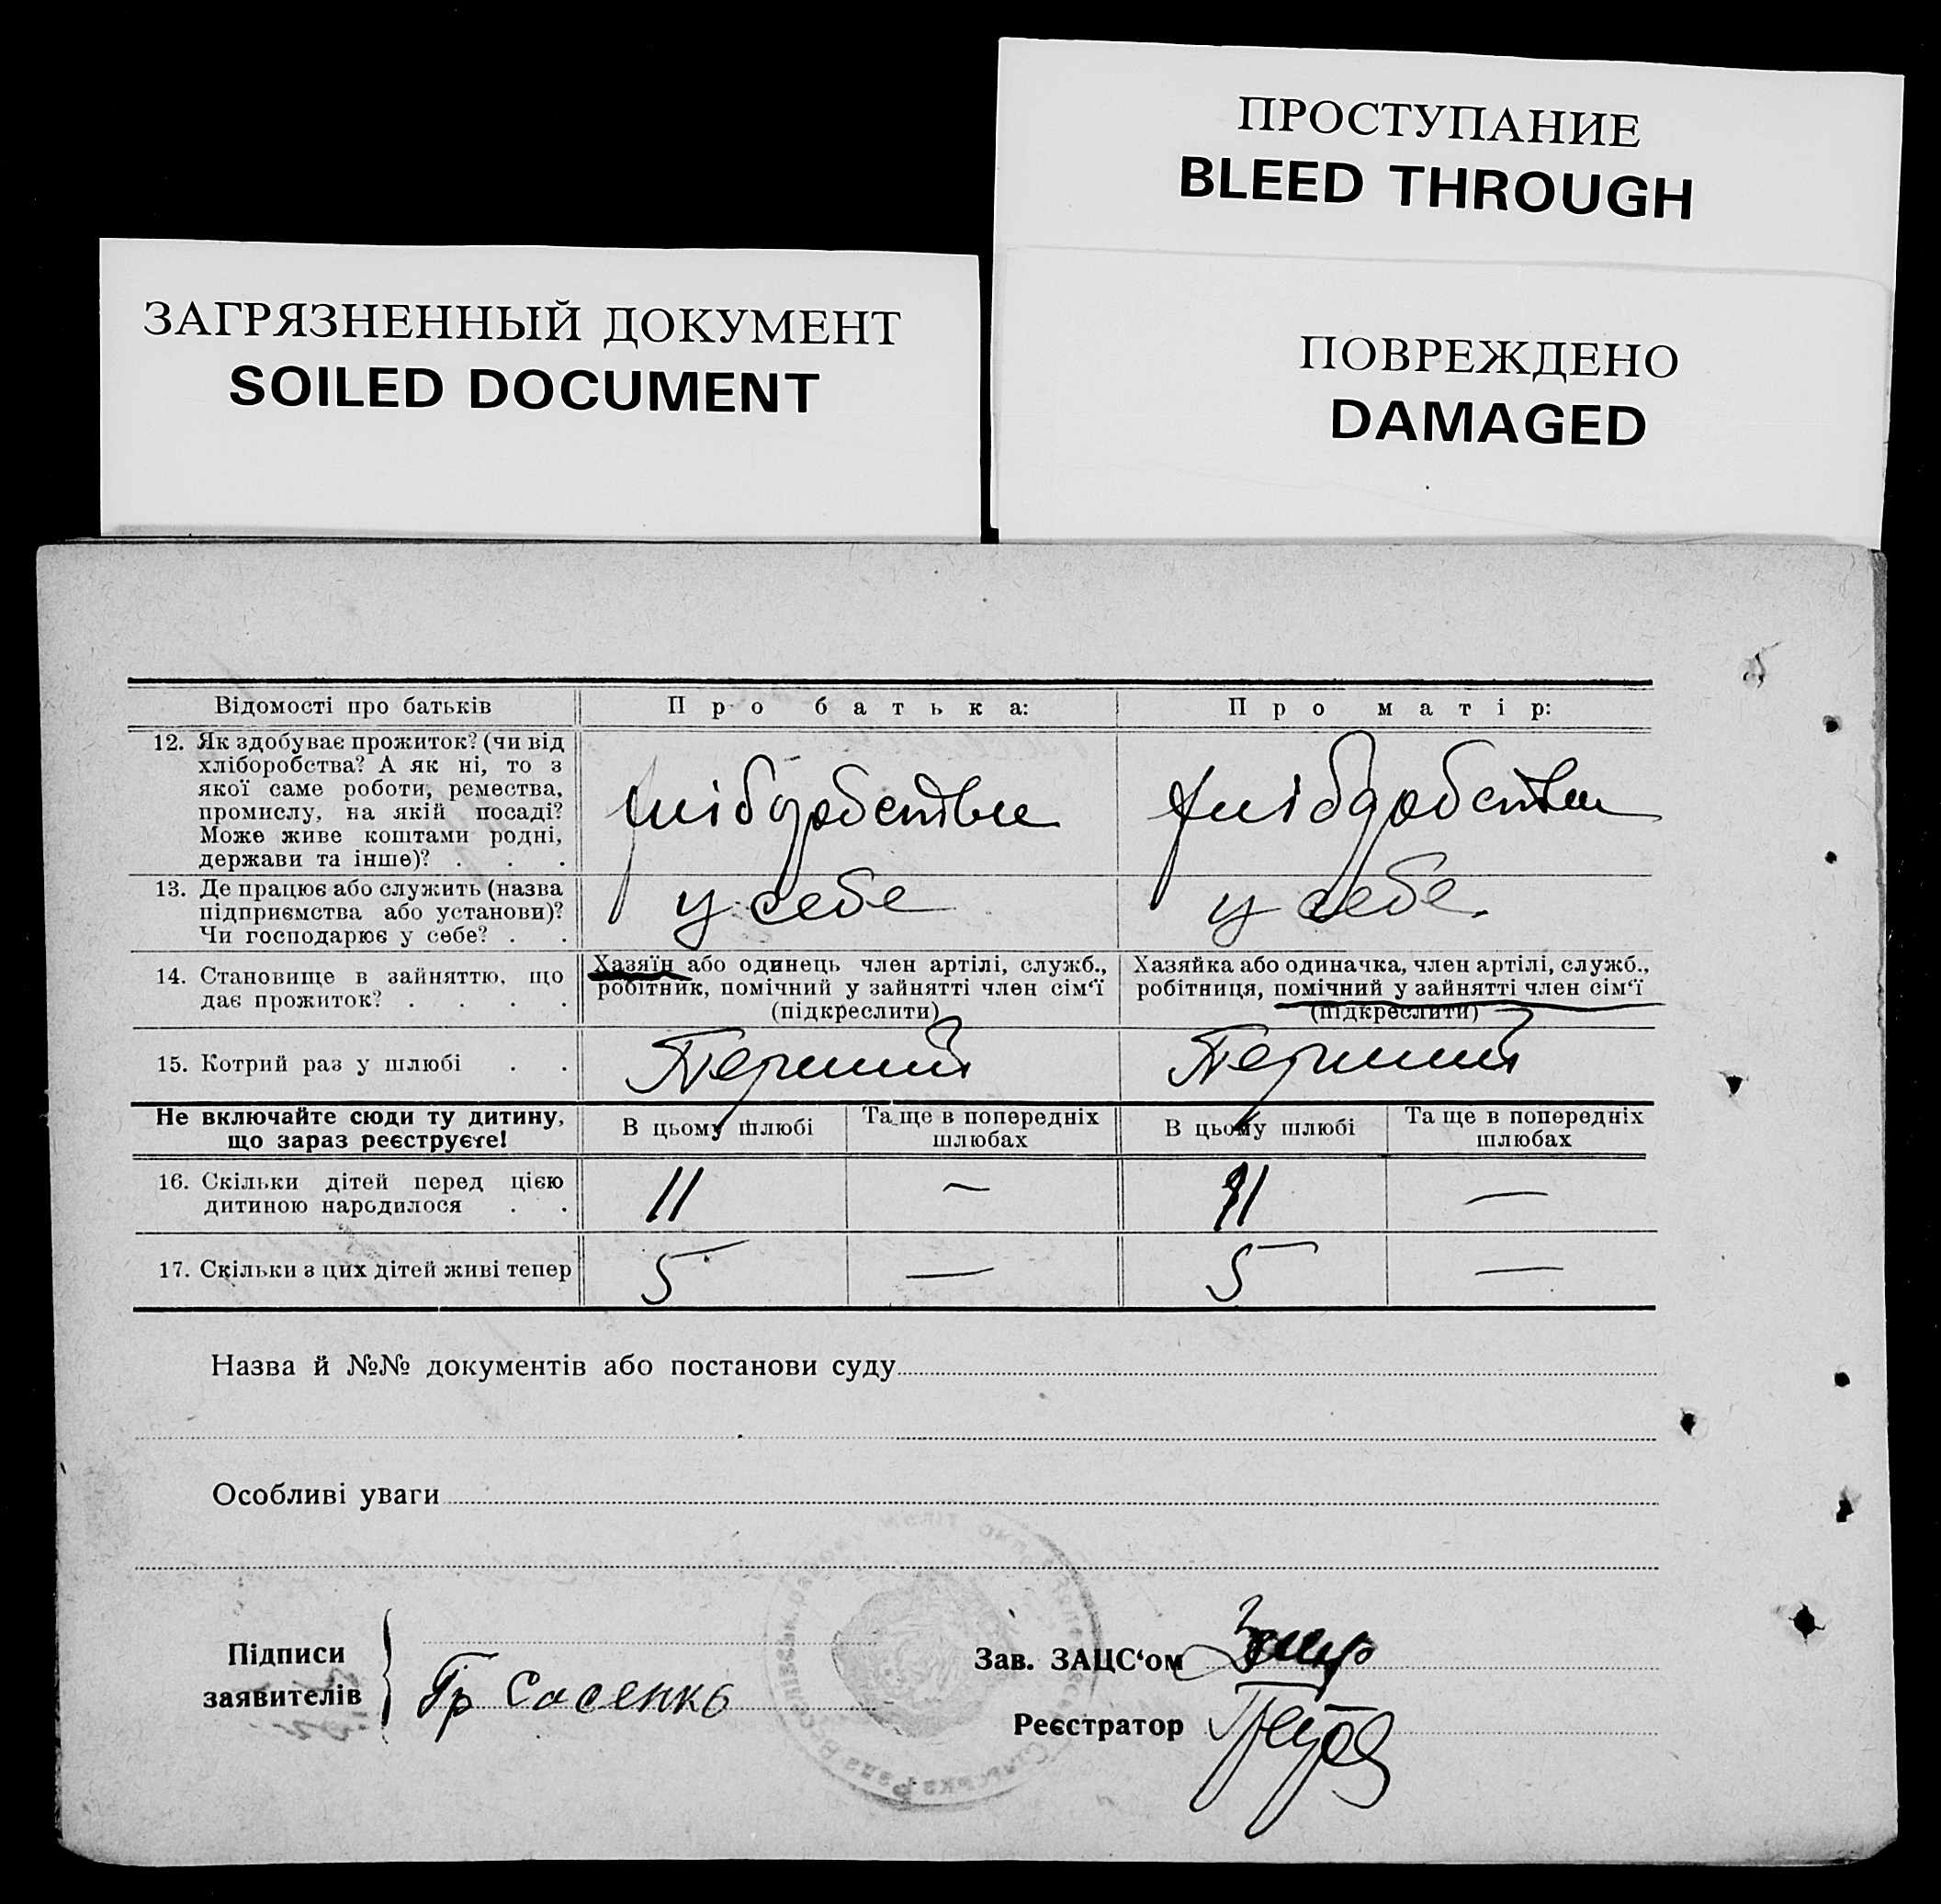 ПРОСТУПАНИЕ
BLEED THROUGH
ЗАГРЯЗНЕННЫЙ ДОКУМЕНТ
SOILED DOCUMENT
ПОВРЕЖДЕНО
DAMAGED
Відомості про батьків
Про батька:
Про матір:
12. Як здобуває прожиток? (чи від
хліборобства? А як ні, то з
якої саме роботи, ремества,
промислу, на якій посаді?
Може живе коштами родні,
держави та інше)? . . .
хліборобством
хліборобством
13. Де працює або служить (назва
підприємства або установи)?
Чи господарює у себе? . .
у себе
у себе.
14. Становище в зайняттю, що
дає прожиток? . . . .
Хазяїн або одинець член артілі, служб.,
робітник, помічний у зайнятті член сім‘ї
(підкреслити)
Хазяйка або одиначка, член артілі, служб.,
робітниця, помічний у зайнятті член сім‘ї
(підкреслити)
15. Котрий раз у шлюбі . .
Перший
Перший
Не включайте сюди ту дитину,
що зараз реєструєте!
В цьому шлюбі
Та ще в попередніх
шлюбах
В цьому шлюбі
Та ще в попередніх
шлюбах
16. Скільки дітей перед цією
дитиною народилося . .
11
—
11
—
17. Скільки з цих дітей живі тепер
5
—
5
—
Назва й №№ документів або постанови суду
Особливі уваги
Підписи
заявителів
Гр Сасенко
Зав. ЗАЦС‘ом
Реєстратор